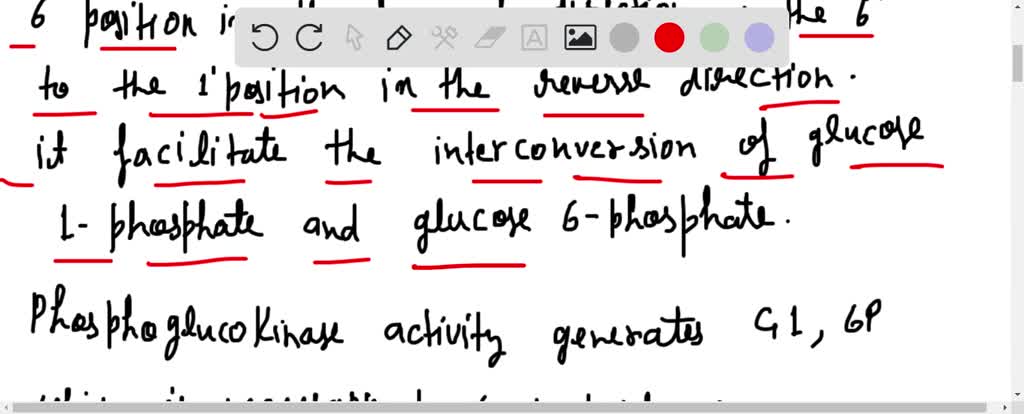 6 position in the 6
to the 1 position in the reverse direction.
it facilitate the interconversion of glucose
1-phosphate and glucose 6-phosphate.
PhosphoglucoKinase activity generates G1, 6P